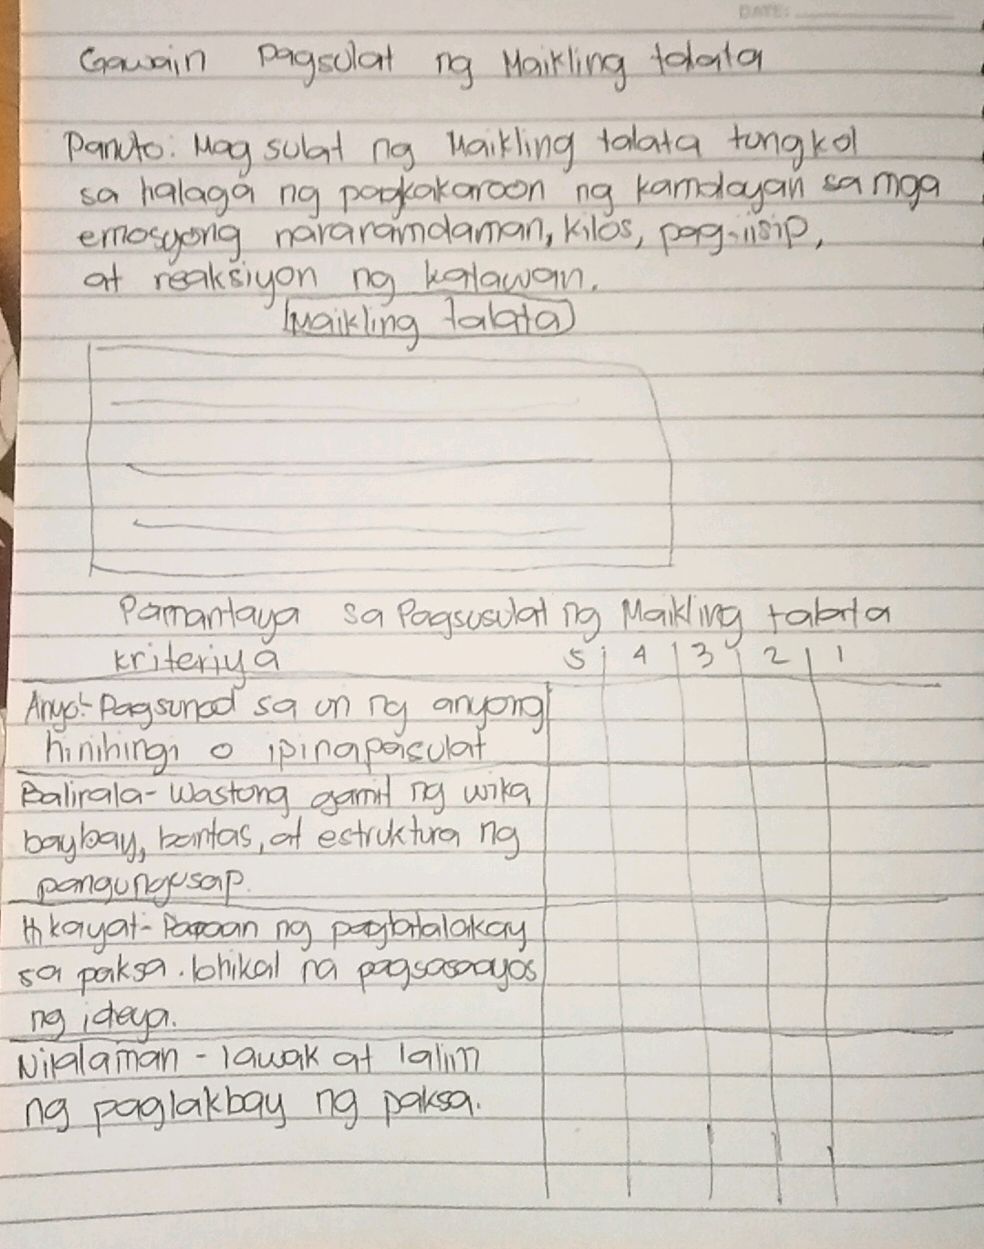 DATE:
Gawain Pagsulat ng Maikling talata
Panuto: Mag sulat ng Maikling talata tungkol
sa halaga ng pagkakaroon ng kamalayan sa mga
emosyong nararamdaman, kilos, pag-iisip,
at reaksiyon ng katawan.
(Maikling talata)
Pamantaya sa Pagsusulat ng Maikling talata
kriteriya 5 4 3 2 1
Anyo:- Pagsunod sa un ng anyong
hinihingi o ipinapasulat
Balirala- Wastong gamit ng wika,
baybay, bantas, at estruktura ng
pangungusap.
Hikayat- Paraan ng pagtatalakay
sa paksa. lohikal na pagsasaayos
ng ideya.
Nilalaman - lawak at lalim
ng paglakbay ng paksa.